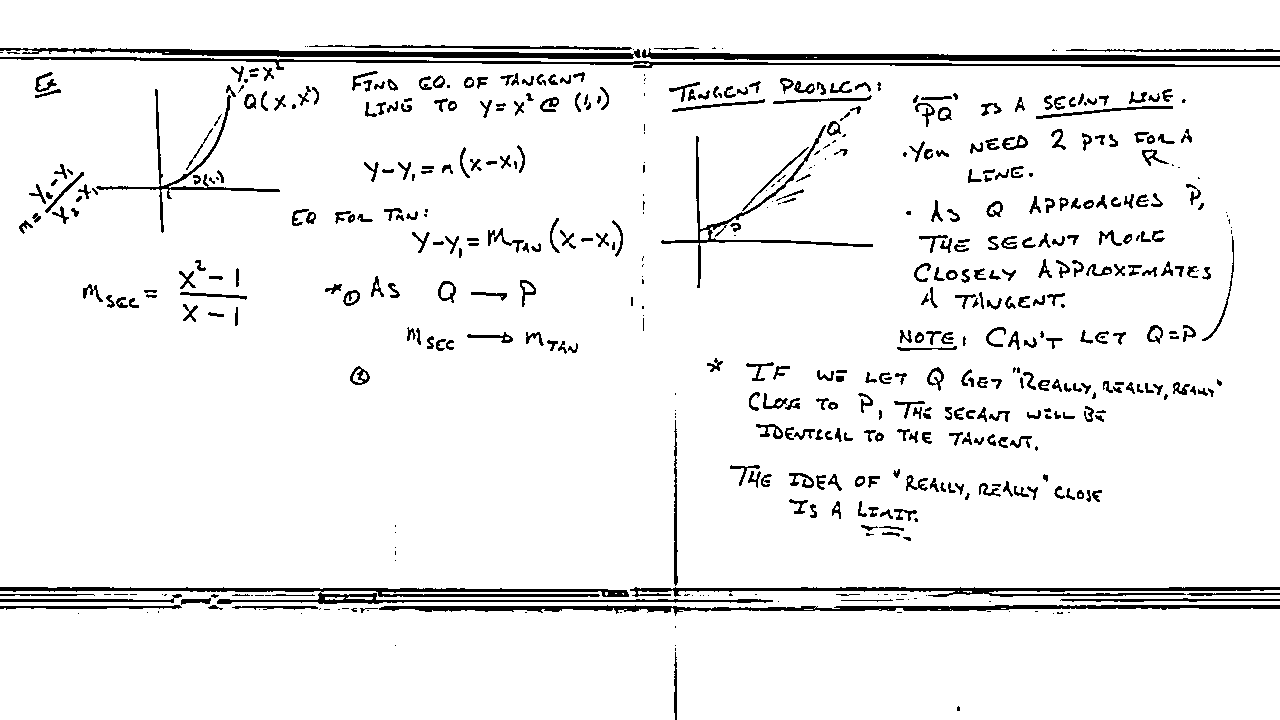 Ex
y=x²
Q(x,x²)
P(1,1)
1
m = y₂-y₁ / x₂-x₁
m_SEC = x²-1 / x-1
FIND EQ. OF TANGENT
LINE TO y=x² @ (1,1)
y-y₁=m(x-x₁)
EQ FOR TAN:
y-y₁=m_TAN(x-x₁)
* ① AS Q → P
m_SEC → m_TAN
②
TANGENT PROBLEM:
Q
P
"PQ" IS A SECANT LINE.
• YOU NEED 2 PTS FOR A
LINE.
• AS Q APPROACHES P,
THE SECANT MORE
CLOSELY APPROXIMATES
A TANGENT.
NOTE: CAN'T LET Q=P
* IF WE LET Q GET "REALLY, REALLY, REALLY"
CLOSE TO P, THE SECANT WILL BE
IDENTICAL TO THE TANGENT.
THE IDEA OF "REALLY, REALLY" CLOSE
IS A LIMIT.